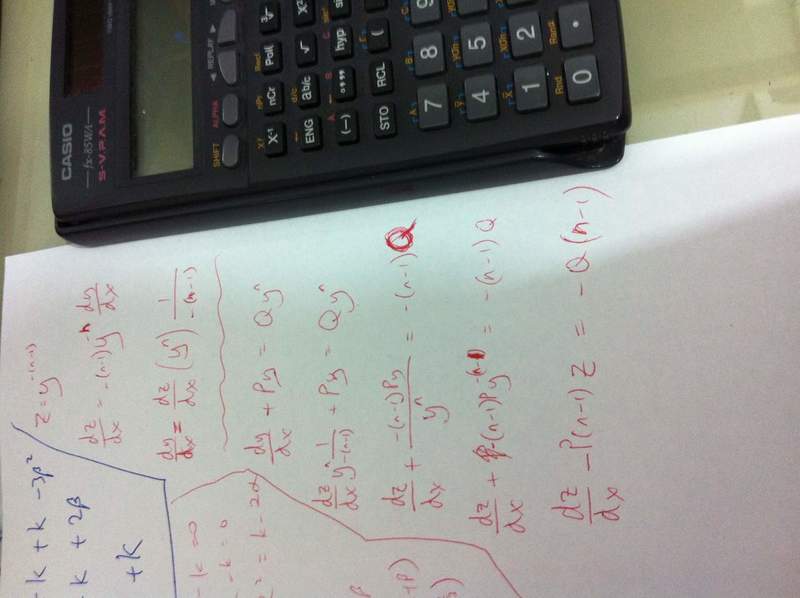 CASIO
fx-85WA
S-V.P.A.M.
SHIFT ALPHA ◀ REPLAY ▶
x⁻¹ nCr Pol( ∛
ENG ab/c √ x²
(−) °'" hyp
STO RCL (
7 8 9
4 5 6
1 2
0 •
−k + k − 3β²
−k + 2β
+k
z = y^-(n-1)
dz/dx = -(n-1) y^-n dy/dx
dy/dx = dz/dx (yⁿ) 1/-(n-1)
dy/dx + Py = Qyⁿ
dz/dx yⁿ 1/-(n-1) + Py = Qyⁿ
dz/dx + -(n-1)Py/yⁿ = -(n-1) Q
dz/dx + -(n-1)Py^-(n-1) = -(n-1) Q
dz/dx − P(n-1) z = −Q(n-1)
−k = 0
² = k − 2α